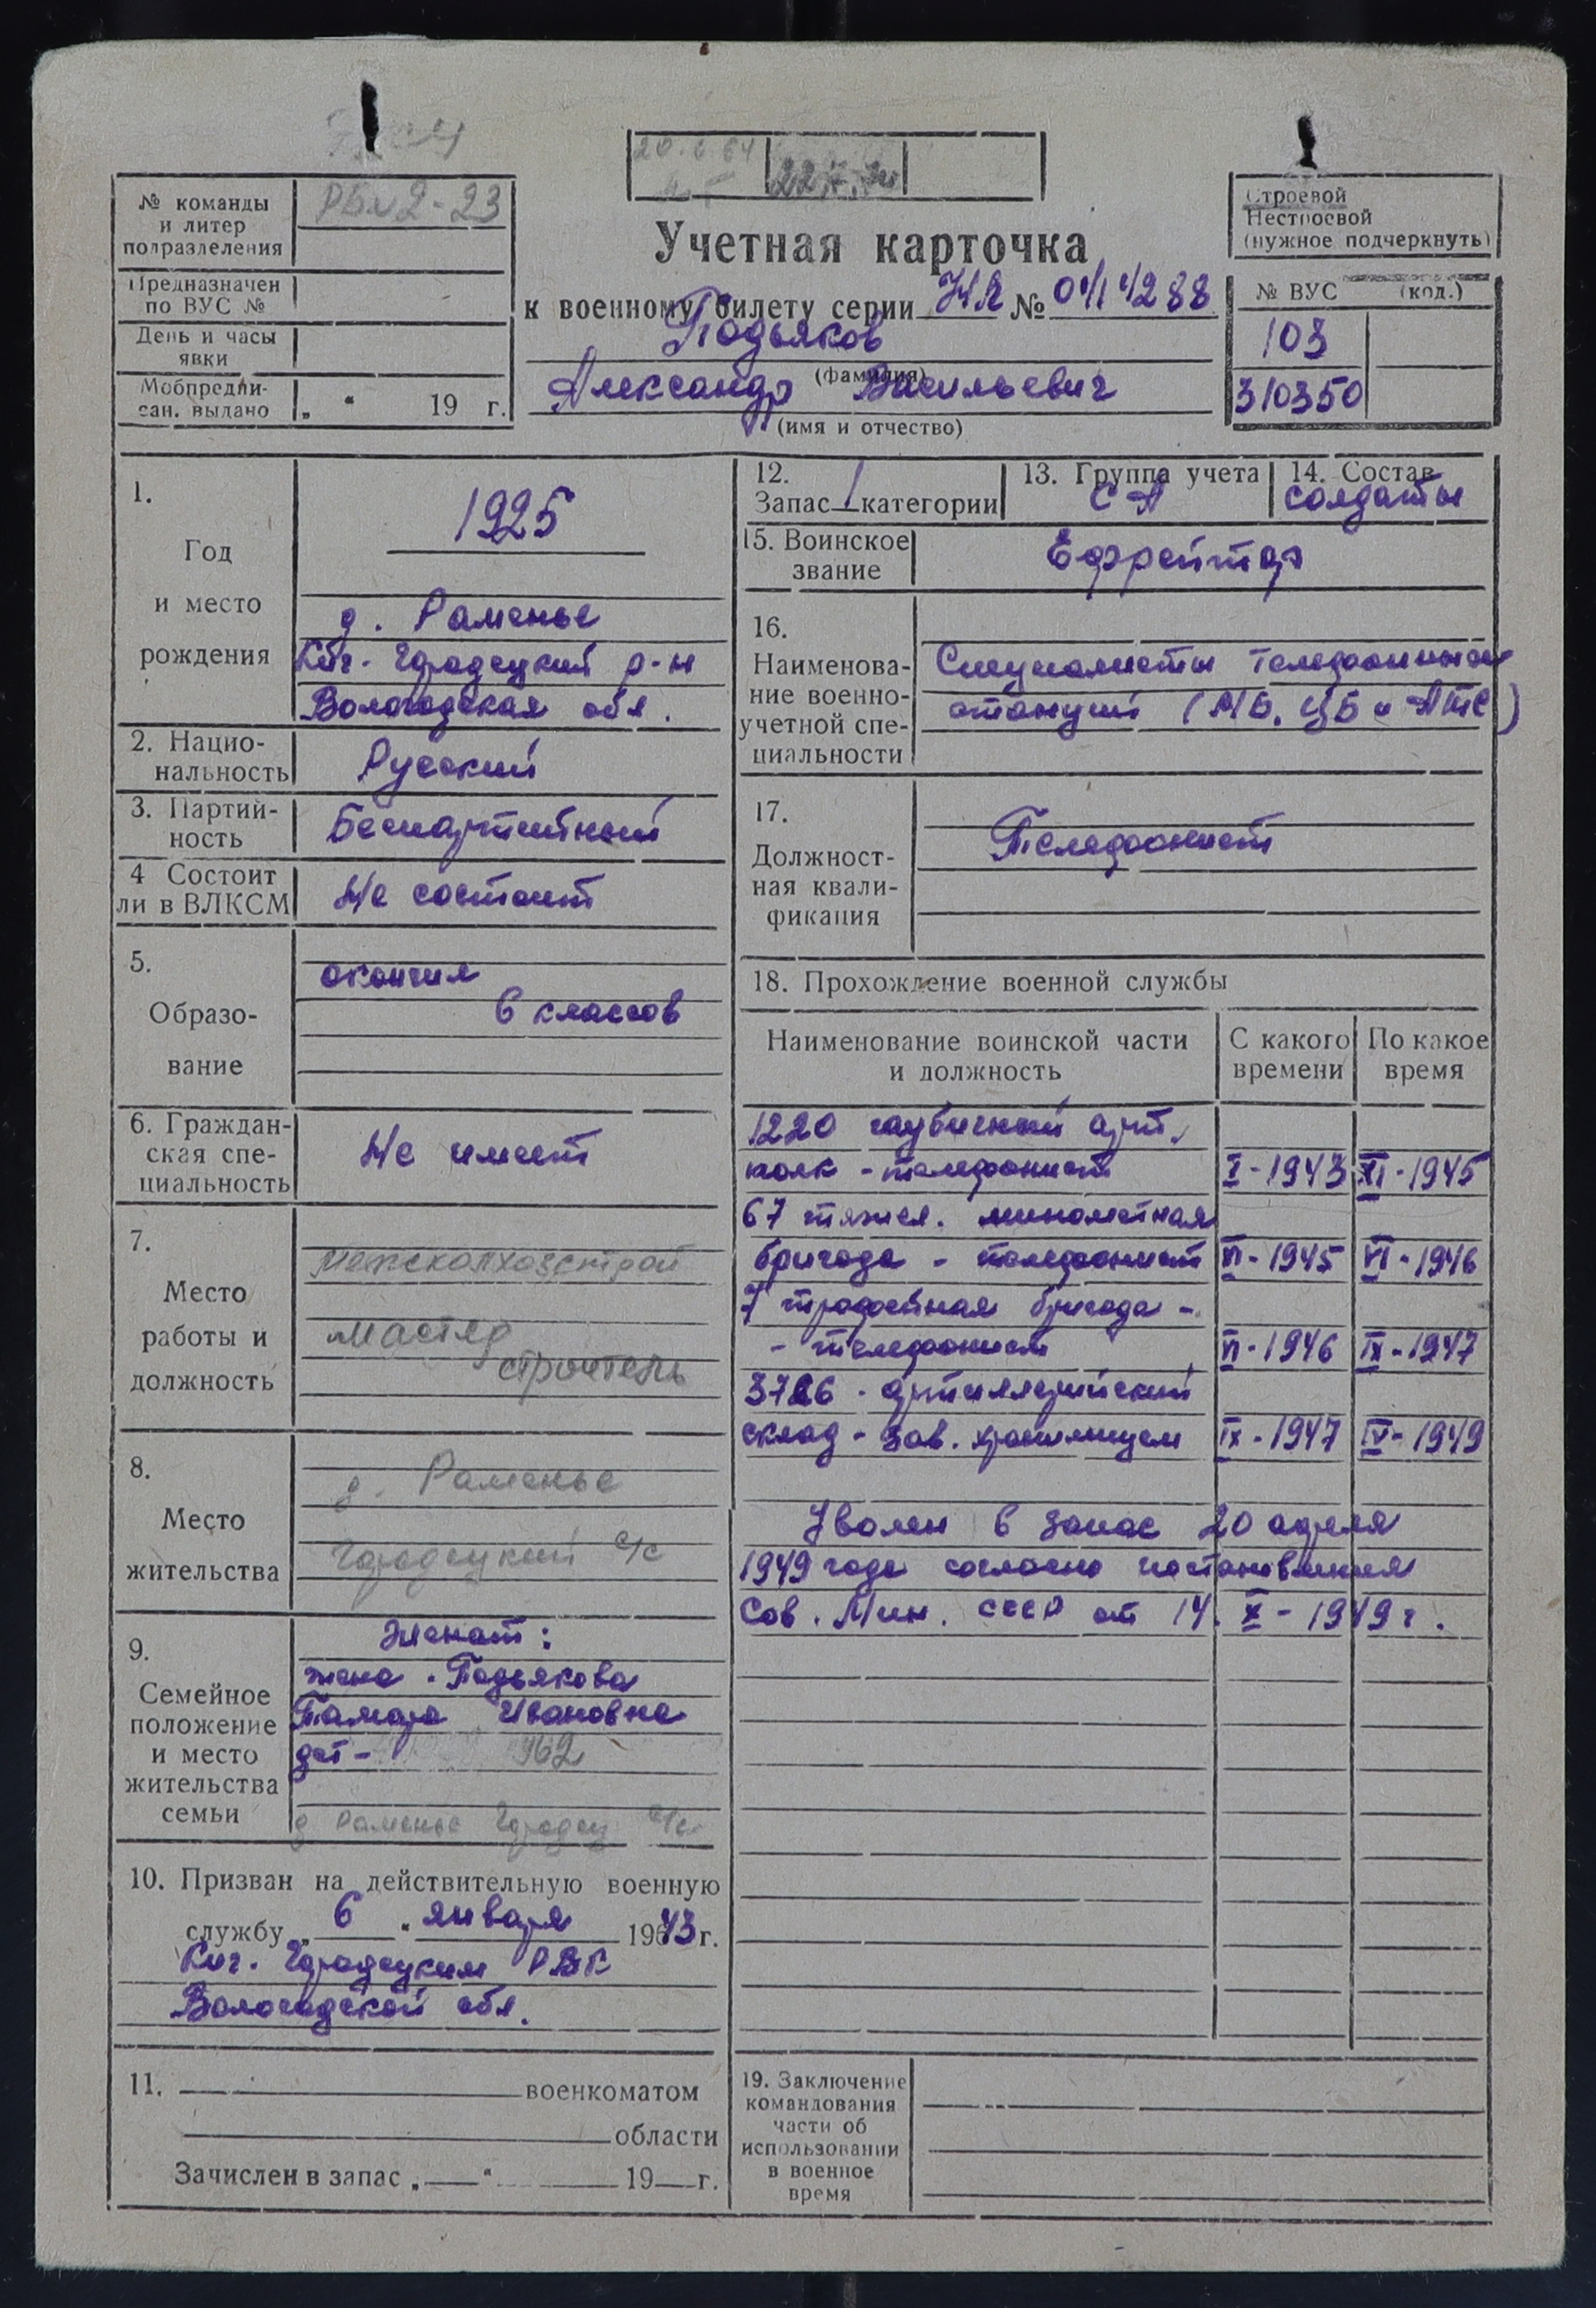 20.6.64
№ команды и литер подразделения
РБм2-23
Предназначен по ВУС №
День и часы явки
Мобпредписан. выдано „ “ 19 г.
Учетная карточка
к военному билету серии НЯ № 0414288
Подьяков
(фамилия)
Александр Васильевич
(имя и отчество)
Строевой
Нестроевой
(нужное подчеркнуть)
№ ВУС (код.)
103
310350
1. Год и место рождения
1925
д. Раменье
Кич-Городецкий р-н
Вологодская обл.
2. Национальность
Русский
3. Партийность
Беспартийный
4 Состоит ли в ВЛКСМ
Не состоит
5. Образование
окончил
6 классов
6. Гражданская специальность
Не имеет
7. Место работы и должность
Межколхозстрой
мастер
строитель
8. Место жительства
д. Раменье
Городецкий с/с
9. Семейное положение и место жительства семьи
Женат:
жена - Подьякова
Тамара Ивановна
дет - 1962
д Раменье Городец с/с
10. Призван на действительную военную
службу „ 6 “ января 19643 г.
Кич. Городецким РВК
Вологодской обл.
11. военкоматом
области
Зачислен в запас „ “ 19 г.
12. Запас 1 категории
13. Группа учета
СА
14. Состав
солдаты
15. Воинское звание
Ефрейтор
16. Наименование военно-учетной специальности
Специалисты телефонных
станций (МБ, ЦБ и АТС)
17. Должностная квалификация
Телефонист
18. Прохождение военной службы
Наименование воинской части и должность
С какого времени
По какое время
1220 гаубичный арт.
полк - телефонист I-1943 XI-1945
67 тяжел. минометная
бригада - телефонист VI-1945 VI-1946
7 трофейная бригада -
- телефонист VI-1946 IX-1947
артиллерийский
склад - зав. хранилищем IX-1947 IV-1949
Уволен в запас 20 апреля
1949 года согласно постановления
Сов. Мин. СССР от 14. X-1949 г.
19. Заключение командования части об использовании в военное время